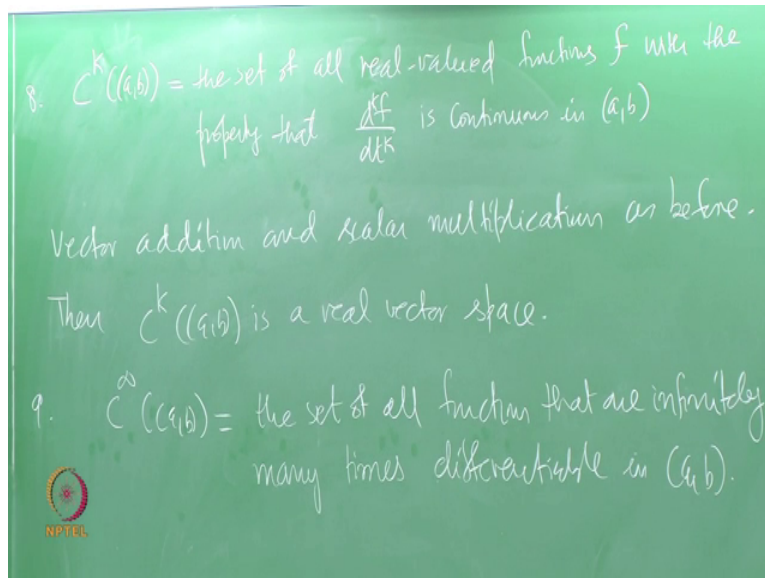 8. C^k((a,b)) = the set of all real-valued functions f with the
property that d^kf/dt^k is continuous in (a,b)
Vector addition and scalar multiplication as before.
Then C^k((a,b)) is a real vector space.
9. C^∞((a,b)) = the set of all function that are infinitely
many times differentiable in (a,b).
NPTEL